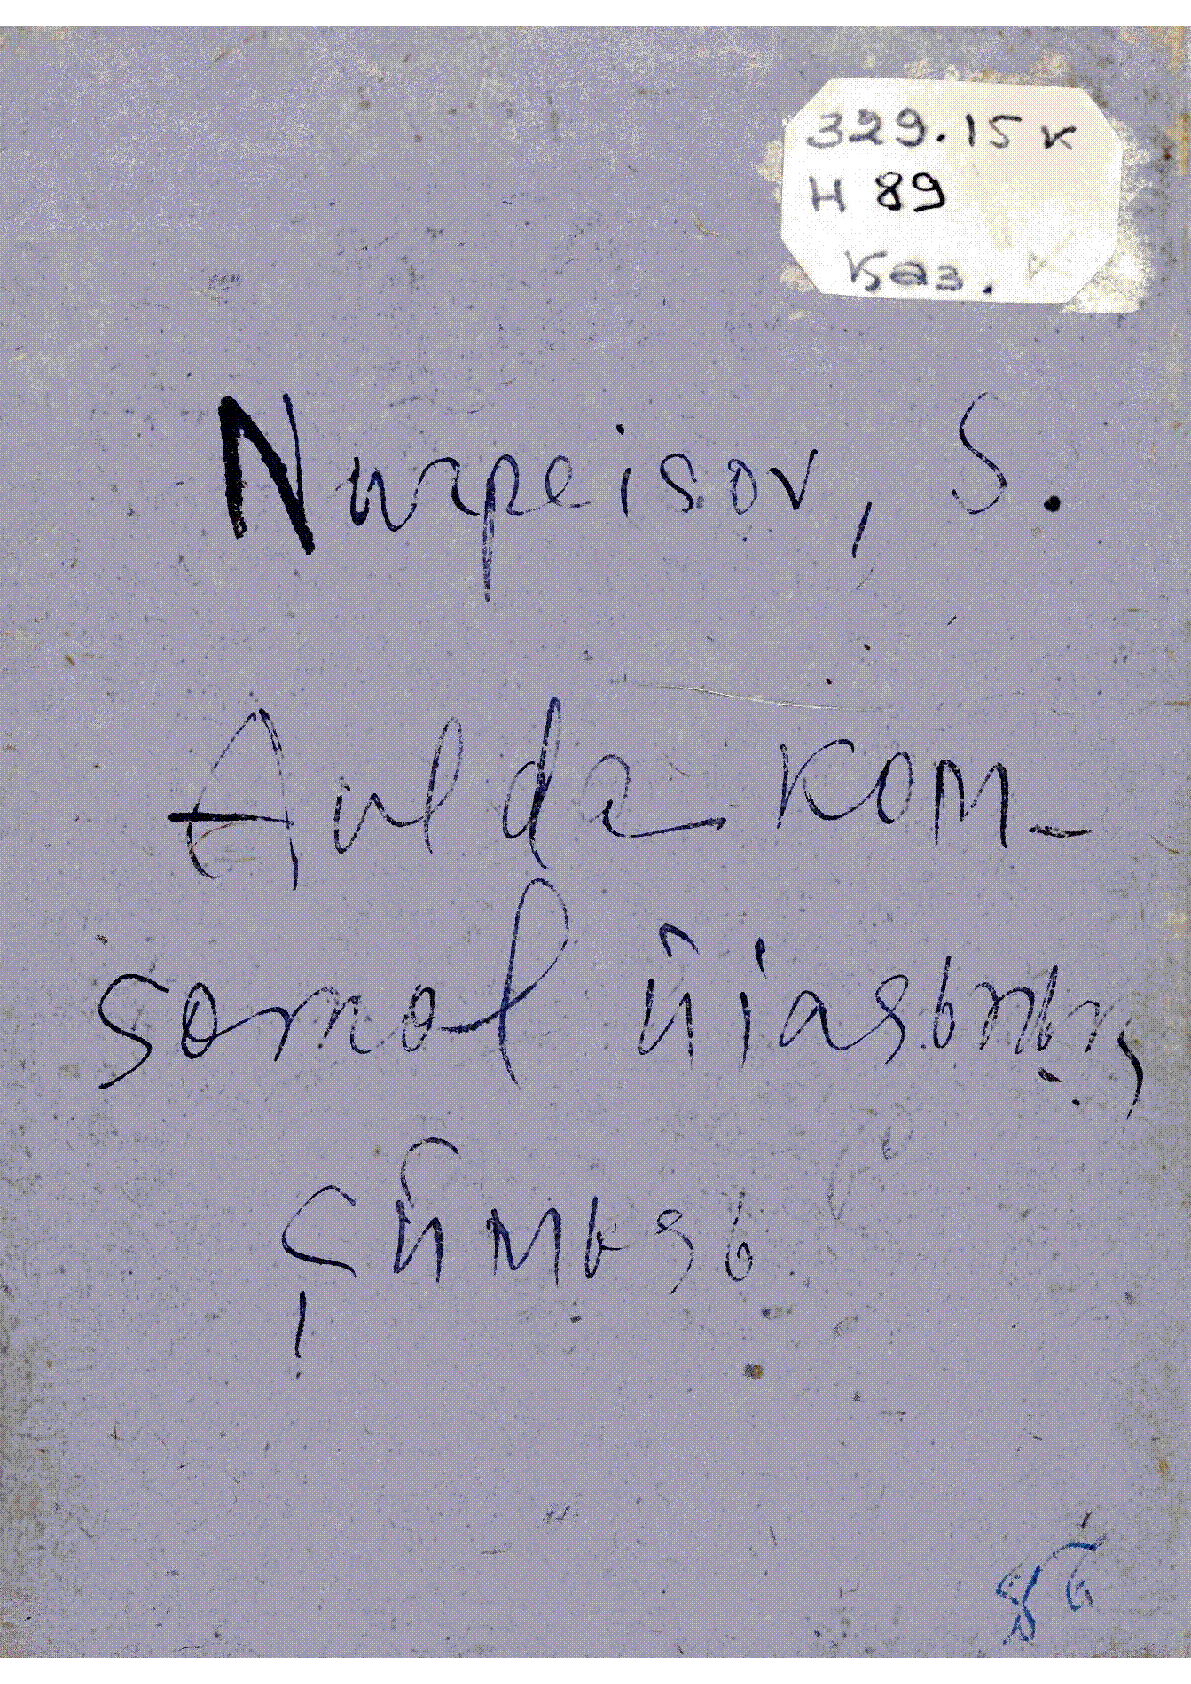 329.15 к
Н 89
Каз.
Nurpeisov, S.
Aulda kom-
somol ūjasьnьņ
çūmьsь